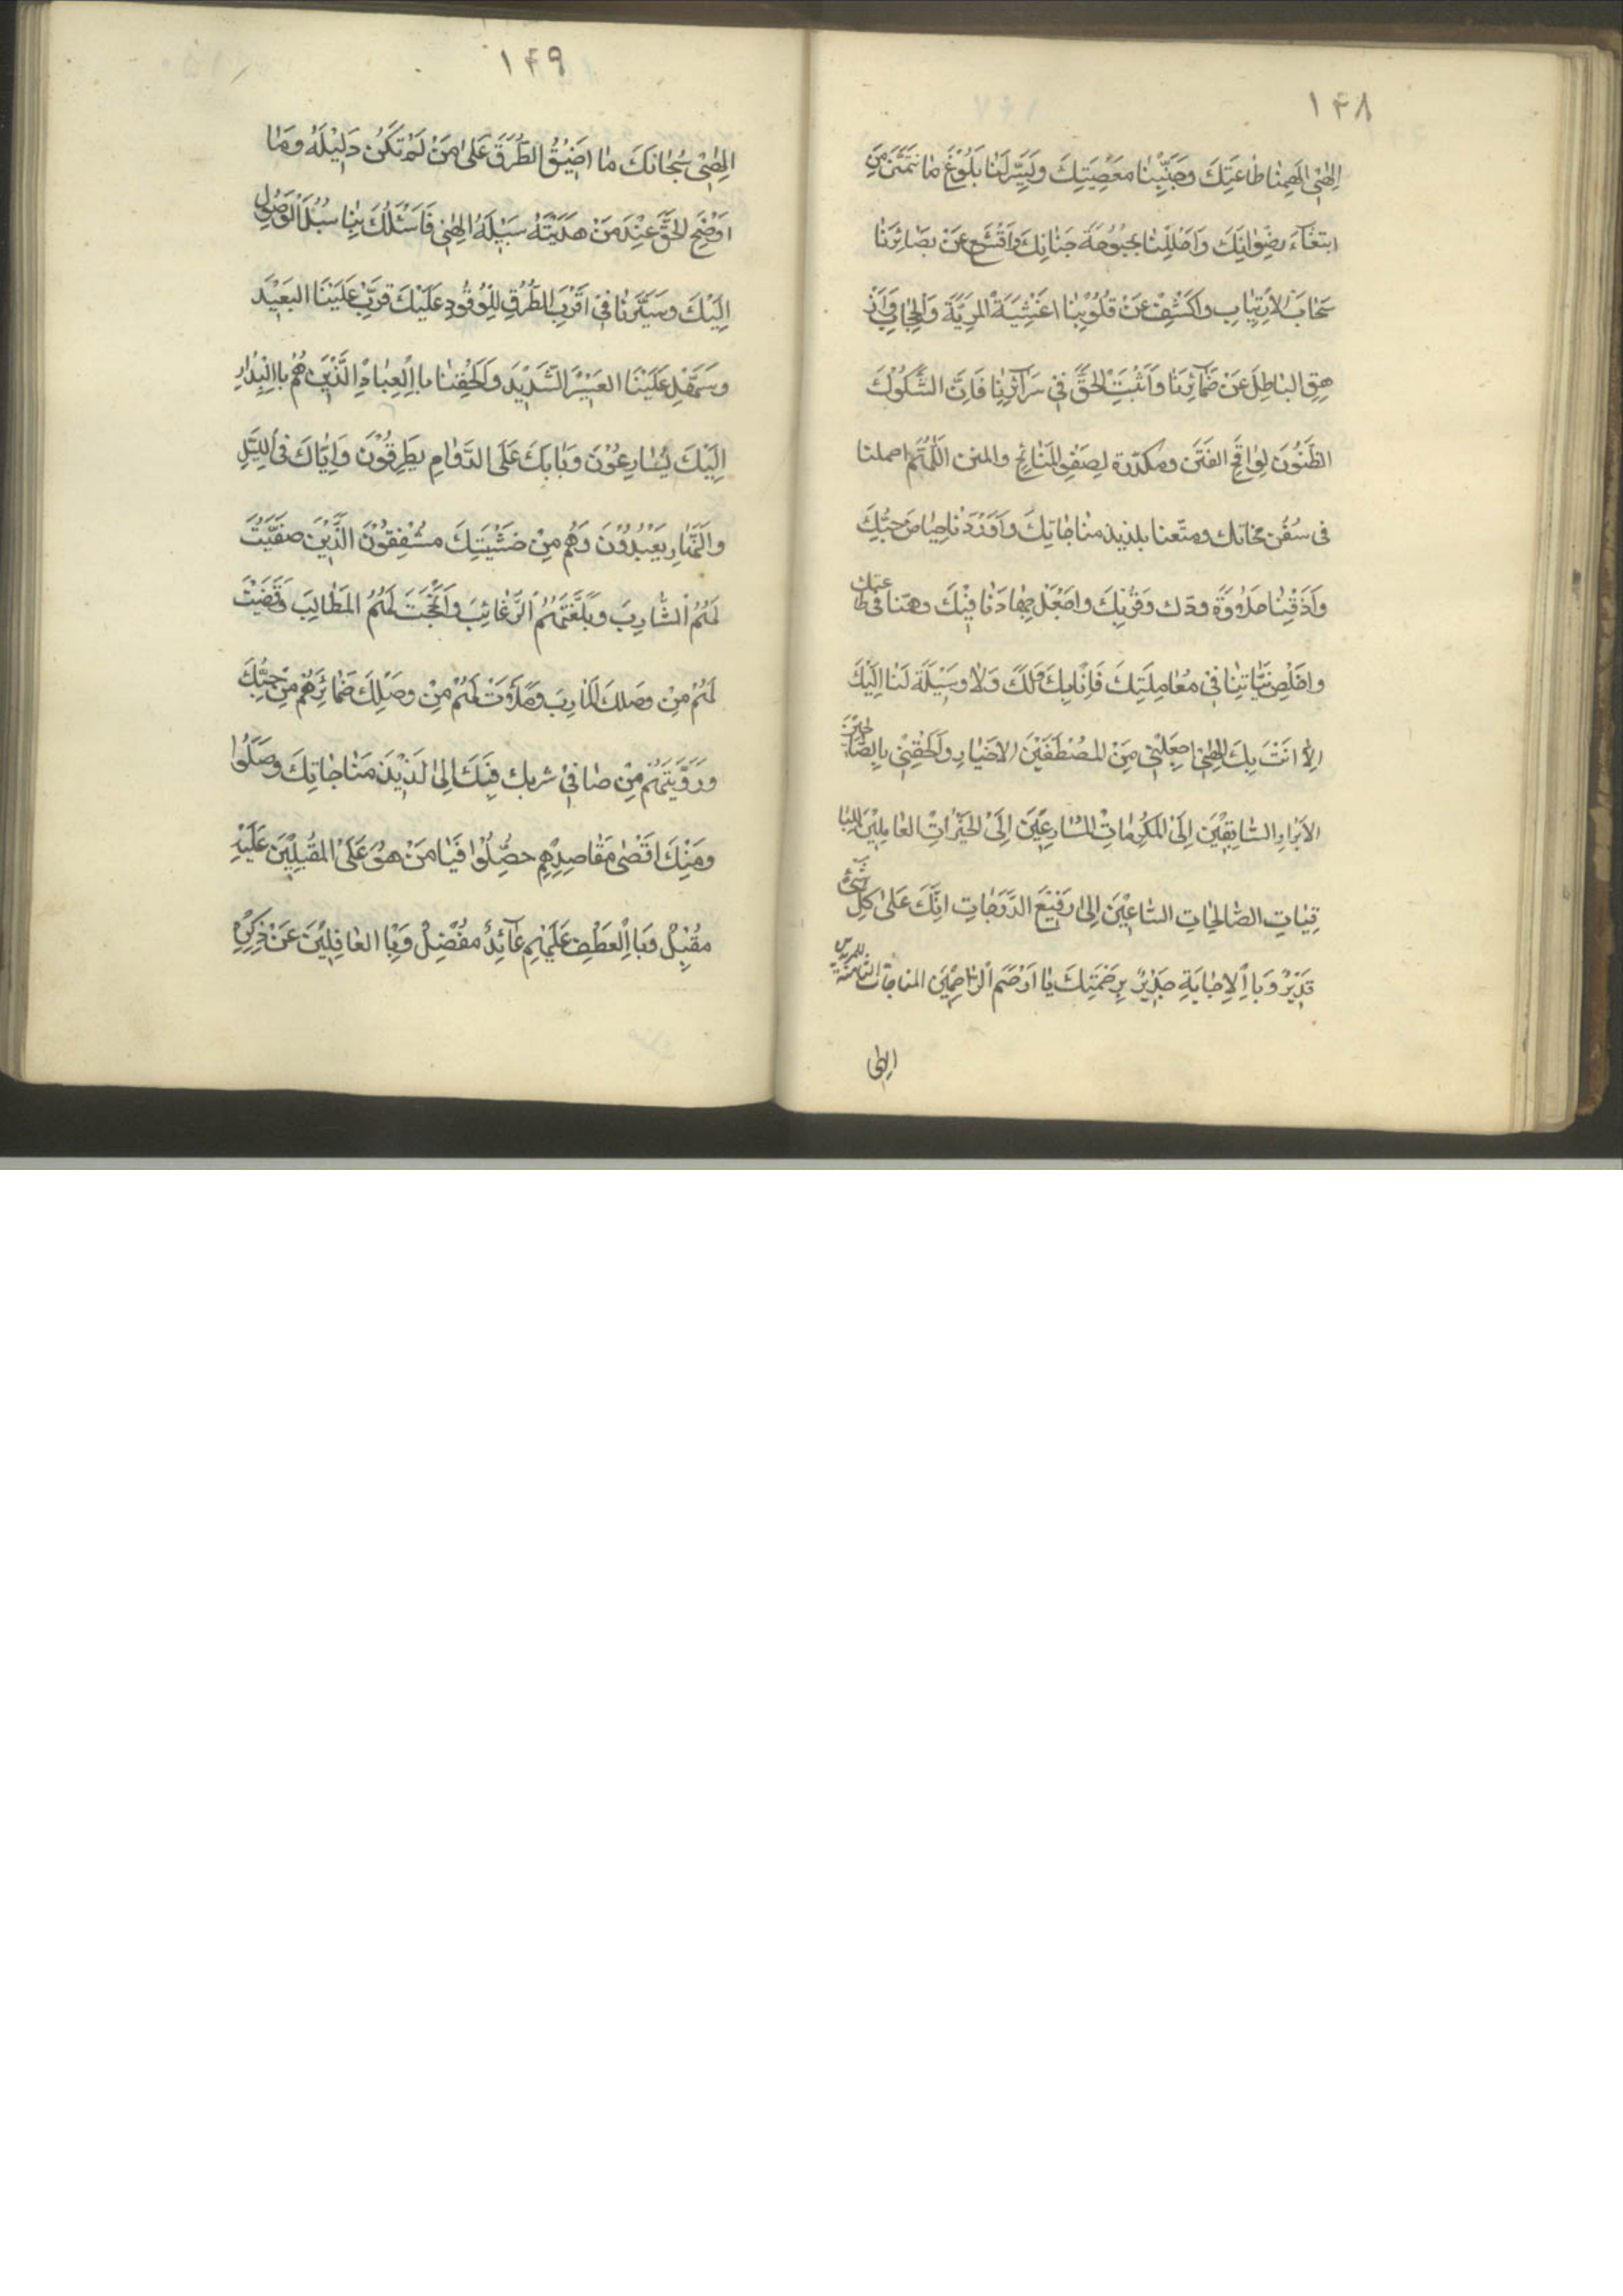 ۱۴۸
الهی الهمنا طاعتك وجنبنا معصیتك ویسر لنا بلوغ ما نتمنی من
ابتغآء رضوانك واحللنا بحبوحة جنانك واقشع عن بصائرنا
سحاب الارتیاب واكشف عن قلوبنا اغشیة المریة والحجاب وازْ
هق الباطل عن ضمآئرنا واثبت الحق فی سرآئرنا فان الشكوك
الظنون لواقح الفتن ومكدرة لصفو المنائح والمنن اللهم احملنا
فی سفن نجاتك ومتعنا بلذیذ مناجاتك واوردنا حیاض حبك
واذقنا حلاوة ودك وقربك واجعل جهادنا فیك وهمنا فی طاعتك
واخلص نیاتنا فی معاملتك فانا بك ولك ولا وسیلة لنا الیك
الا انت بك الهی اجعلنی من المصطفین الاخیار والحقنی بالصالحین
الابرار السابقین الی المكرمات المسارعین الی الخیرات العاملین للبا
قیات الصالحات الساعین الی رفیع الدرجات انك علی كل شیء
قدیر وباالاجابة جدیر برحمتك یا ارحم الراحمین المناجات الثامنة للمریدین
الهی
۱۴۹
الهی سبحانك ما اضیق الطرق علی من لم تكن دلیله وما
اوضح الحق عند من هدیته سبیله الهی فاسئلك بنا سبل الوصول
الیك وسیرنا فی اقرب الطرق للوفود علیك قرب علینا البعید
وسهل علینا العسیر الشدید والحقنا باالعباد الذین هم باالبدار
الیك یسارعون وبابك علی الدوام یطرقون وایاك فی اللیل
والنهار یعبدون وهم من خشیتك مشفقون الذین صفیت
لهم المشارب وبلغتهم الرغائب وانجحت لهم المطالب وقضیت
لهم من وصلك المارب وملأت لهم من وصلك ضمائرهم من حبك
ورویتهم من صافی شربك فبك الی لذیذ مناجاتك وصلوا
ومنك اقصی مقاصدهم حصلوا فیا من هو علی المقبلین علیه
مقبل وباالعطف علیهم عآئد مفضل وباالغافلین عن ذكره